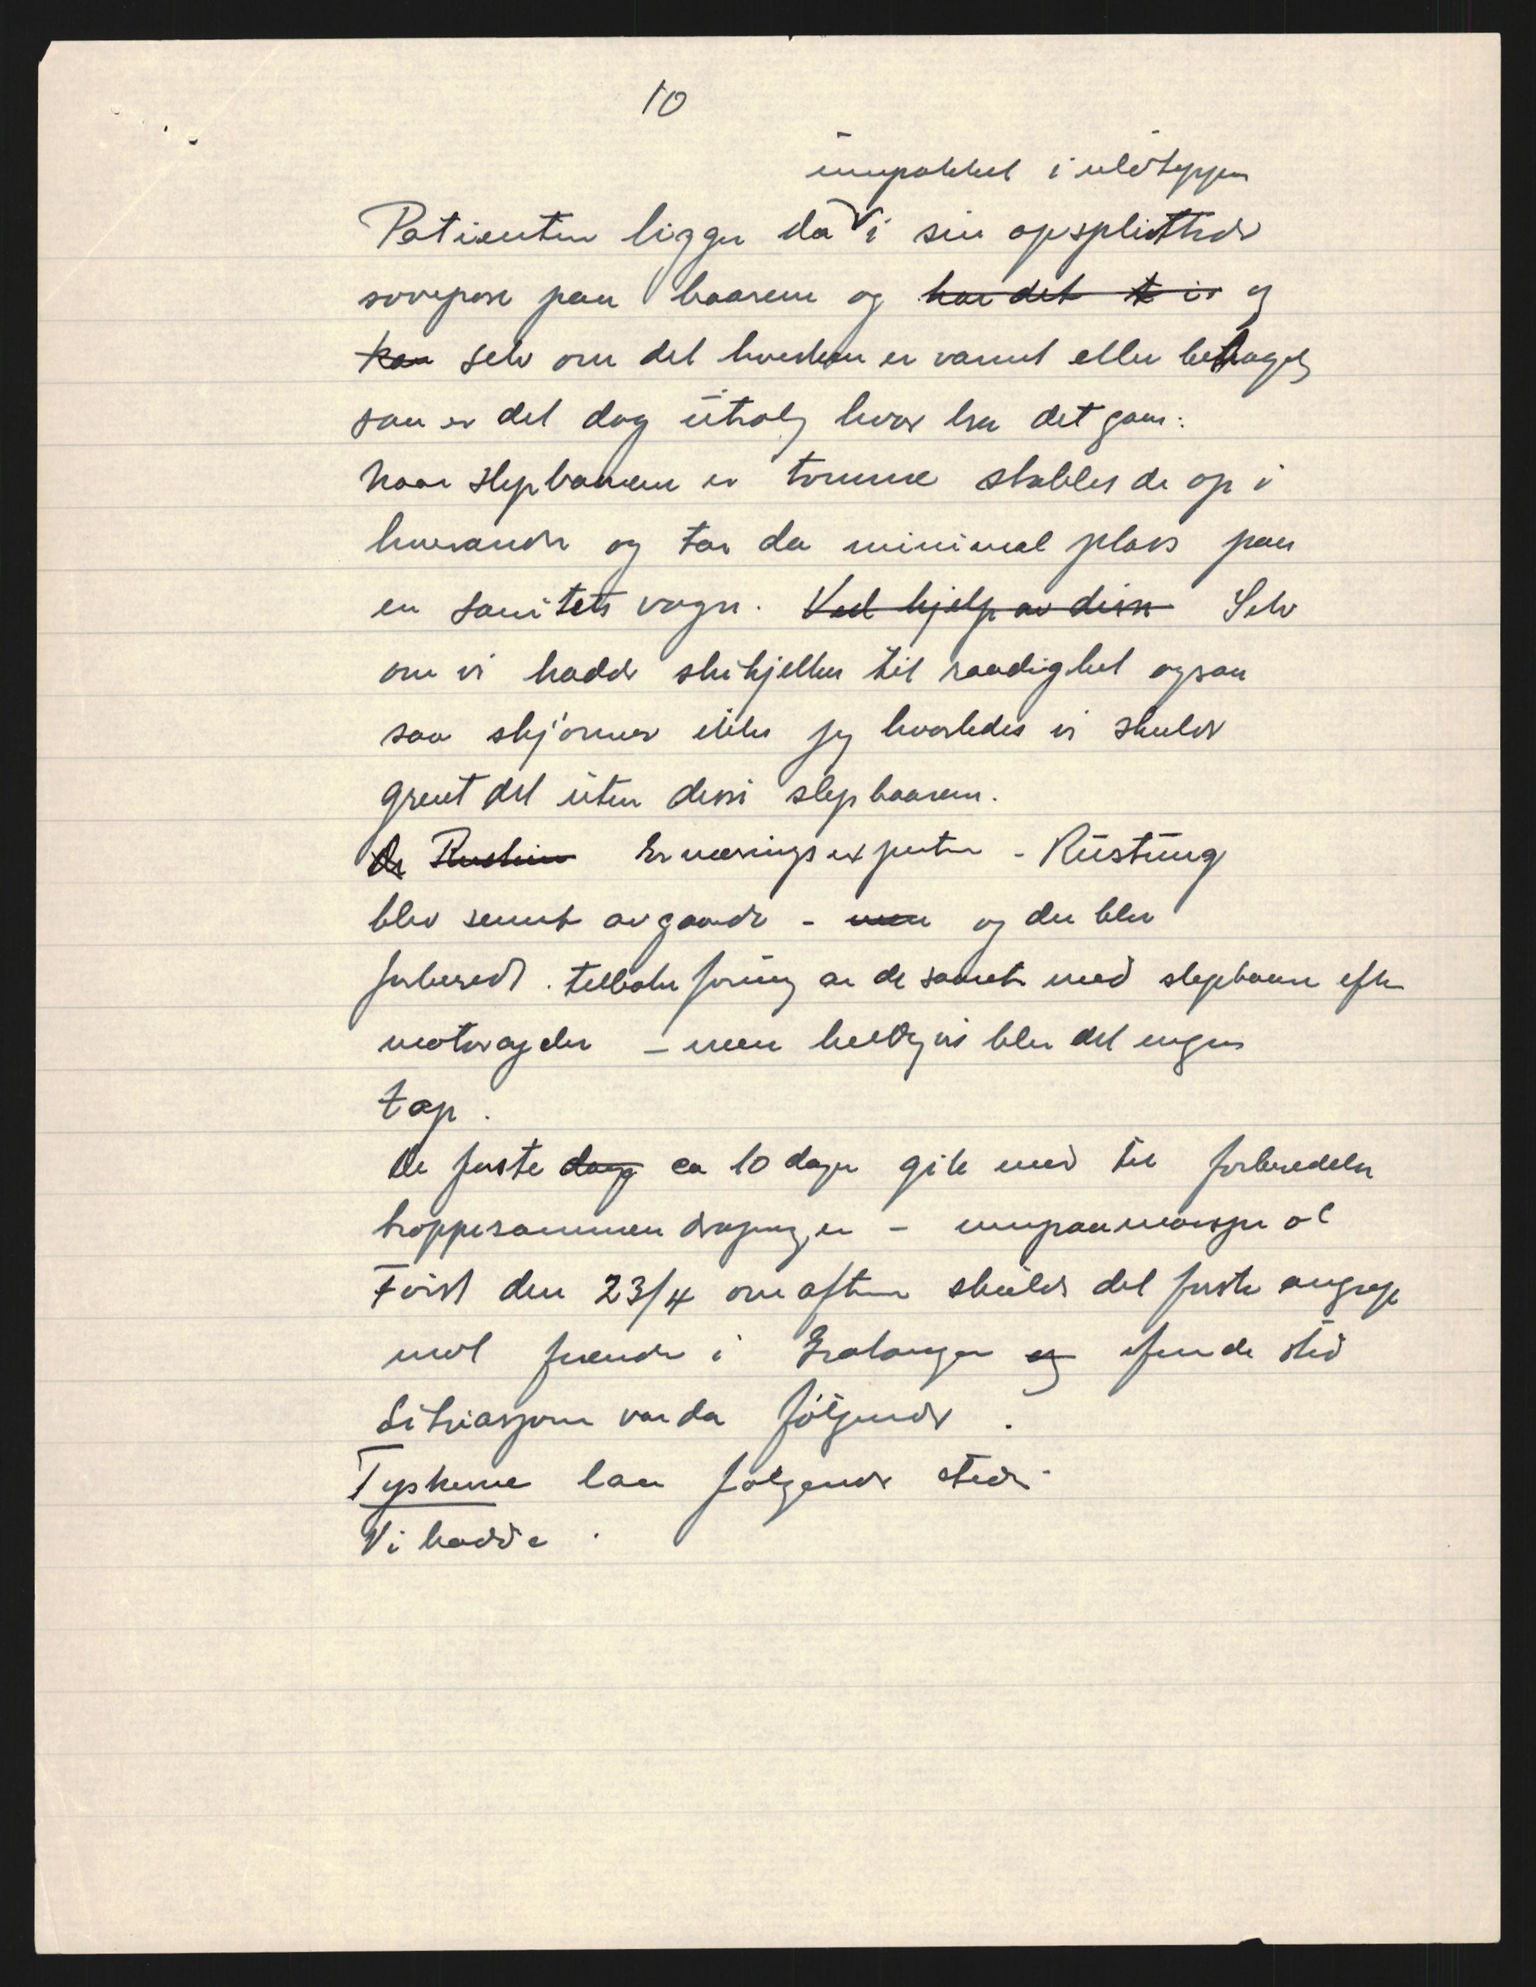 10
innpakket i uldtepper
Patienten ligger da i sin opsplittede
sovepose paa baaren og har det og
kan selv om det hverken er varmt eller behagelig
saa er det dog utrolig hvor bra det gaar.
Naar slepbaarene er tomme stables de op i
hverandre og tar da minimal plass paa
en sanitets vogn. Ved hjelp av disse Selv
om vi hadde skikjelker til raadighet ogsaa
saa skjønner ikke jeg hvorledes vi skulde
greiet det uten disse slepbaarene.
De Ernæringsexperten - Rustung
blev sendt avgaarde - men og der blev
forberedt tilbakeføring av de saarete med slepbaare efter
motorveier - men heldigvis blev det ingen
tap.
De første dag ca 10 dager gik med til forberedelser
troppesammendragninger -
Først den 23/4 om aftenen skulde det første angrep
mot fienden i Gratangen og finde sted
Situasjonen var da følgende .
Tyskerne laa følgende steder
Vi hadde .